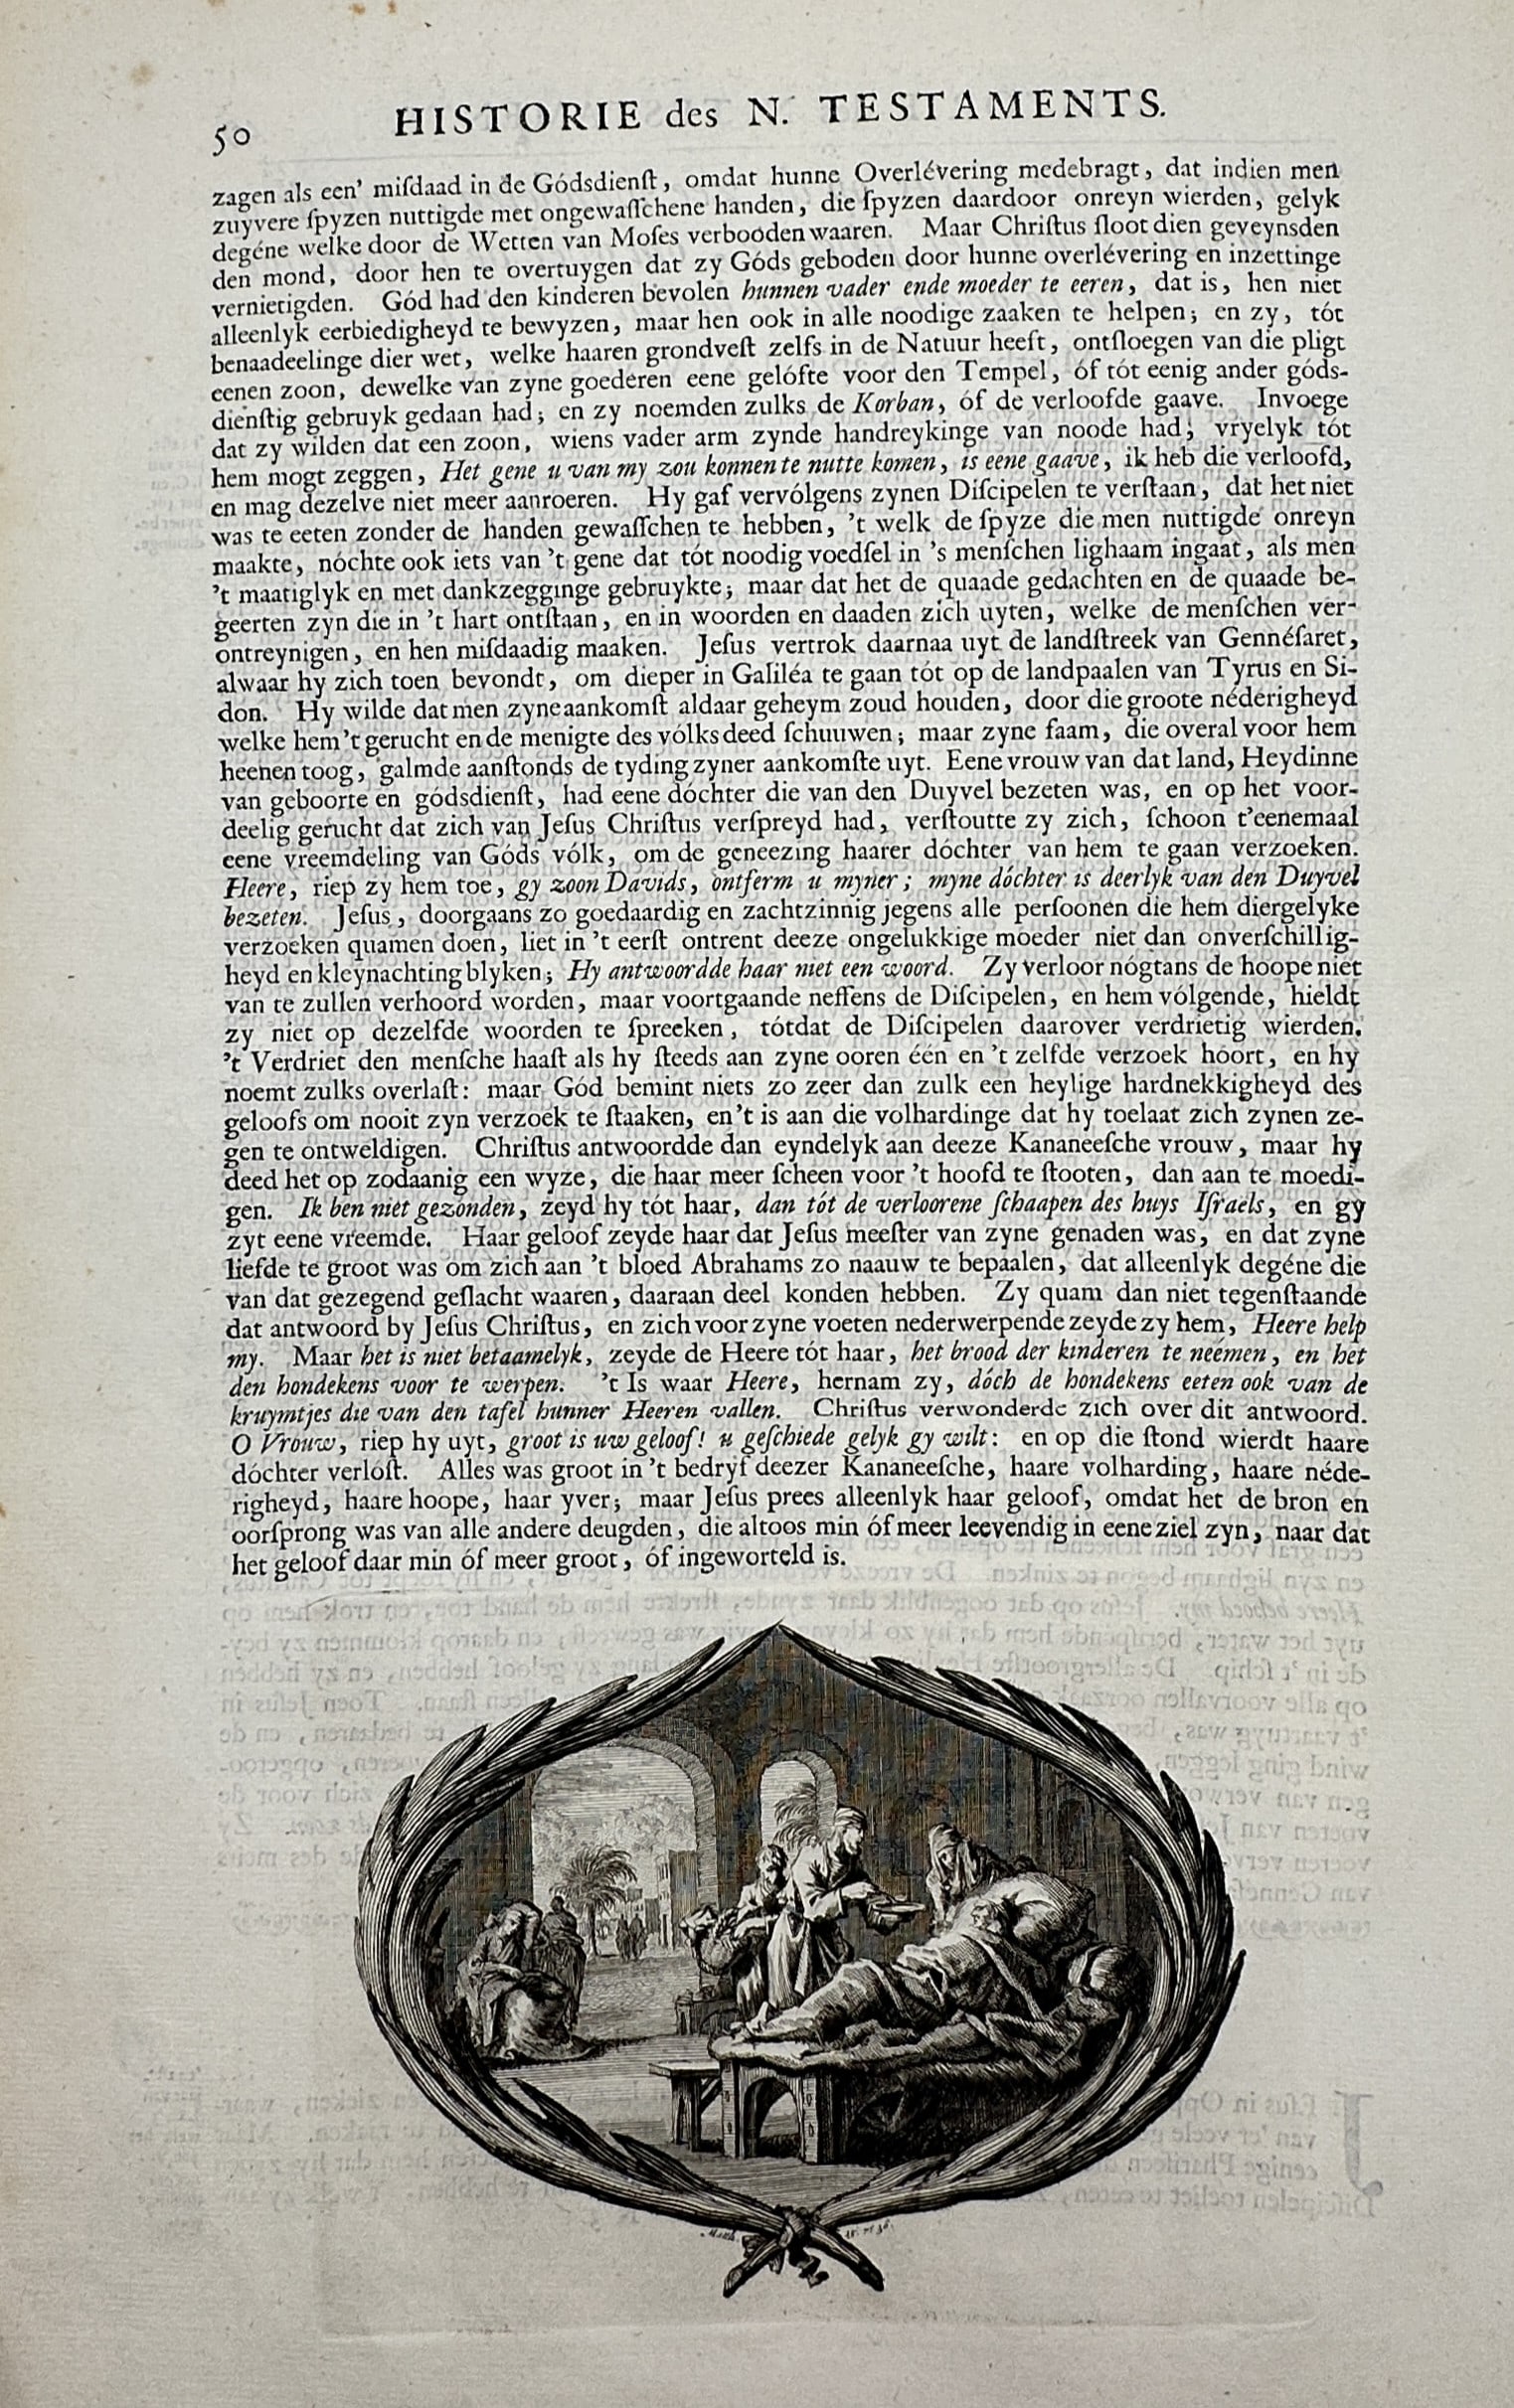 50
HISTORIE des N. TESTAMENTS.
zagen als een' miſdaad in de Gódsdienſt, omdat hunne Overlévering medebragt, dat indien men
zuyvere ſpyzen nuttigde met ongewaſſchene handen, die ſpyzen daardoor onreyn wierden, gelyk
degéne welke door de Wetten van Moſes verbooden waaren. Maar Chriſtus ſloot dien geveynsden
den mond, door hen te overtuygen dat zy Góds geboden door hunne overlévering en inzettinge
vernietigden. Gód had den kinderen bevolen hunnen vader ende moeder te eeren, dat is, hen niet
alleenlyk eerbiedigheyd te bewyzen, maar hen ook in alle noodige zaaken te helpen; en zy, tót
benaadeelinge dier wet, welke haaren grondveſt zelfs in de Natuur heeft, ontſloegen van die pligt
eenen zoon, dewelke van zyne goederen eene gelófte voor den Tempel, óf tót eenig ander góds-
dienſtig gebruyk gedaan had; en zy noemden zulks de Korban, óf de verloofde gaave. Invoege
dat zy wilden dat een zoon, wiens vader arm zynde handreykinge van noode had, vryelyk tót
hem mogt zeggen, Het gene u van my zou konnen te nutte komen, is eene gaave, ik heb die verloofd,
en mag dezelve niet meer aanroeren. Hy gaf vervólgens zynen Diſcipelen te verſtaan, dat het niet
was te eeten zonder de handen gewaſſchen te hebben, 't welk de ſpyze die men nuttigde onreyn
maakte, nóchte ook iets van 't gene dat tót noodig voedſel in 's menſchen lighaam ingaat, als men
't maatiglyk en met dankzegginge gebruykte; maar dat het de quaade gedachten en de quaade be-
geerten zyn die in 't hart ontſtaan, en in woorden en daaden zich uyten, welke de menſchen ver-
ontreynigen, en hen miſdaadig maaken. Jeſus vertrok daarnaa uyt de landſtreek van Gennéſaret,
alwaar hy zich toen bevondt, om dieper in Galiléa te gaan tót op de landpaalen van Tyrus en Si-
don. Hy wilde dat men zyne aankomſt aldaar geheym zoud houden, door die groote néderigheyd
welke hem 't gerucht en de menigte des vólks deed ſchuuwen; maar zyne faam, die overal voor hem
heenen toog, galmde aanſtonds de tyding zyner aankomſte uyt. Eene vrouw van dat land, Heydinne
van geboorte en gódsdienſt, had eene dóchter die van den Duyvel bezeten was, en op het voor-
deelig gerucht dat zich van Jeſus Chriſtus verſpreyd had, verſtoutte zy zich, ſchoon t'eenemaal
eene vreemdeling van Góds vólk, om de geneezing haarer dóchter van hem te gaan verzoeken.
Heere, riep zy hem toe, gy zoon Davids, ontferm u myner; myne dóchter is deerlyk van den Duyvel
bezeten. Jeſus, doorgaans zo goedaardig en zachtzinnig jegens alle perſoonen die hem diergelyke
verzoeken quamen doen, liet in 't eerſt ontrent deeze ongelukkige moeder niet dan onverſchillig-
heyd en kleynachting blyken; Hy antwoordde haar niet een woord. Zy verloor nógtans de hoope niet
van te zullen verhoord worden, maar voortgaande neffens de Diſcipelen, en hem vólgende, hieldt
zy niet op dezelfde woorden te ſpreeken, tótdat de Diſcipelen daarover verdrietig wierden.
't Verdriet den menſche haaſt als hy ſteeds aan zyne ooren één en 't zelfde verzoek hoort, en hy
noemt zulks overlaſt: maar Gód bemint niets zo zeer dan zulk een heylige hardnekkigheyd des
geloofs om nooit zyn verzoek te ſtaaken, en 't is aan die volhardinge dat hy toelaat zich zynen ze-
gen te ontweldigen. Chriſtus antwoordde dan eyndelyk aan deeze Kananeeſche vrouw, maar hy
deed het op zodaanig een wyze, die haar meer ſcheen voor 't hoofd te ſtooten, dan aan te moedi-
gen. Ik ben niet gezonden, zeyd hy tót haar, dan tót de verloorene ſchaapen des huys Iſraels, en gy
zyt eene vreemde. Haar geloof zeyde haar dat Jeſus meeſter van zyne genaden was, en dat zyne
liefde te groot was om zich aan 't bloed Abrahams zo naauw te bepaalen, dat alleenlyk degéne die
van dat gezegend geſlacht waaren, daaraan deel konden hebben. Zy quam dan niet tegenſtaande
dat antwoord by Jeſus Chriſtus, en zich voor zyne voeten nederwerpende zeyde zy hem, Heere help
my. Maar het is niet betaamelyk, zeyde de Heere tót haar, het brood der kinderen te neemen, en het
den hondekens voor te werpen. 't Is waar Heere, hernam zy, dóch de hondekens eeten ook van de
kruymtjes die van den tafel hunner Heeren vallen. Chriſtus verwonderde zich over dit antwoord.
O Vrouw, riep hy uyt, groot is uw geloof! u geſchiede gelyk gy wilt: en op die ſtond wierdt haare
dóchter verloſt. Alles was groot in 't bedryf deezer Kananeeſche, haare volharding, haare néde-
righeyd, haare hoope, haar yver; maar Jeſus prees alleenlyk haar geloof, omdat het de bron en
oorſprong was van alle andere deugden, die altoos min óf meer leevendig in eene ziel zyn, naar dat
het geloof daar min óf meer groot, óf ingeworteld is.
Matth.